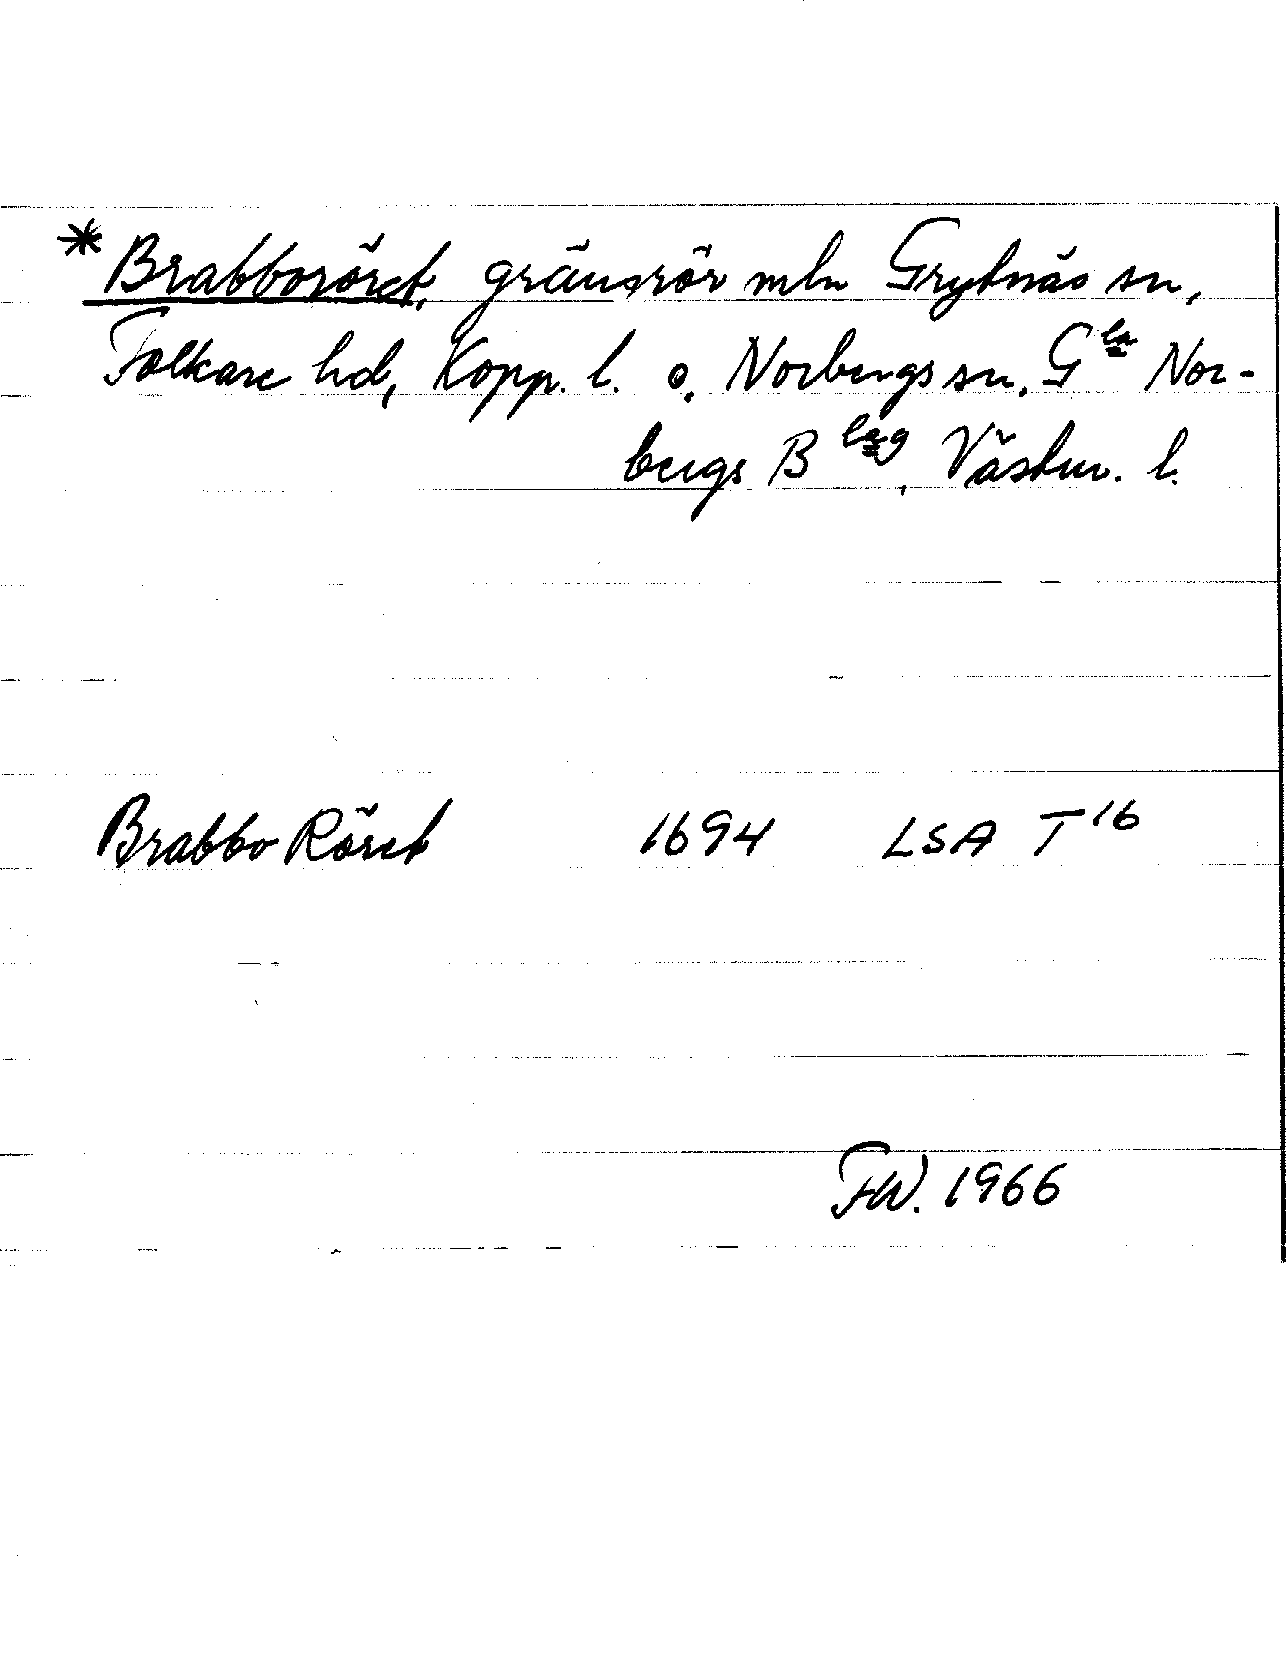 *Brabboröret, gränsrör mln Grytnäs sn,
Folkare hd, Kopp. l. o. Norbergs sn, Gla Nor-
bergs Blag, Västm. l.
Brabbo Röret 1694 LSA T16
FW. 1966